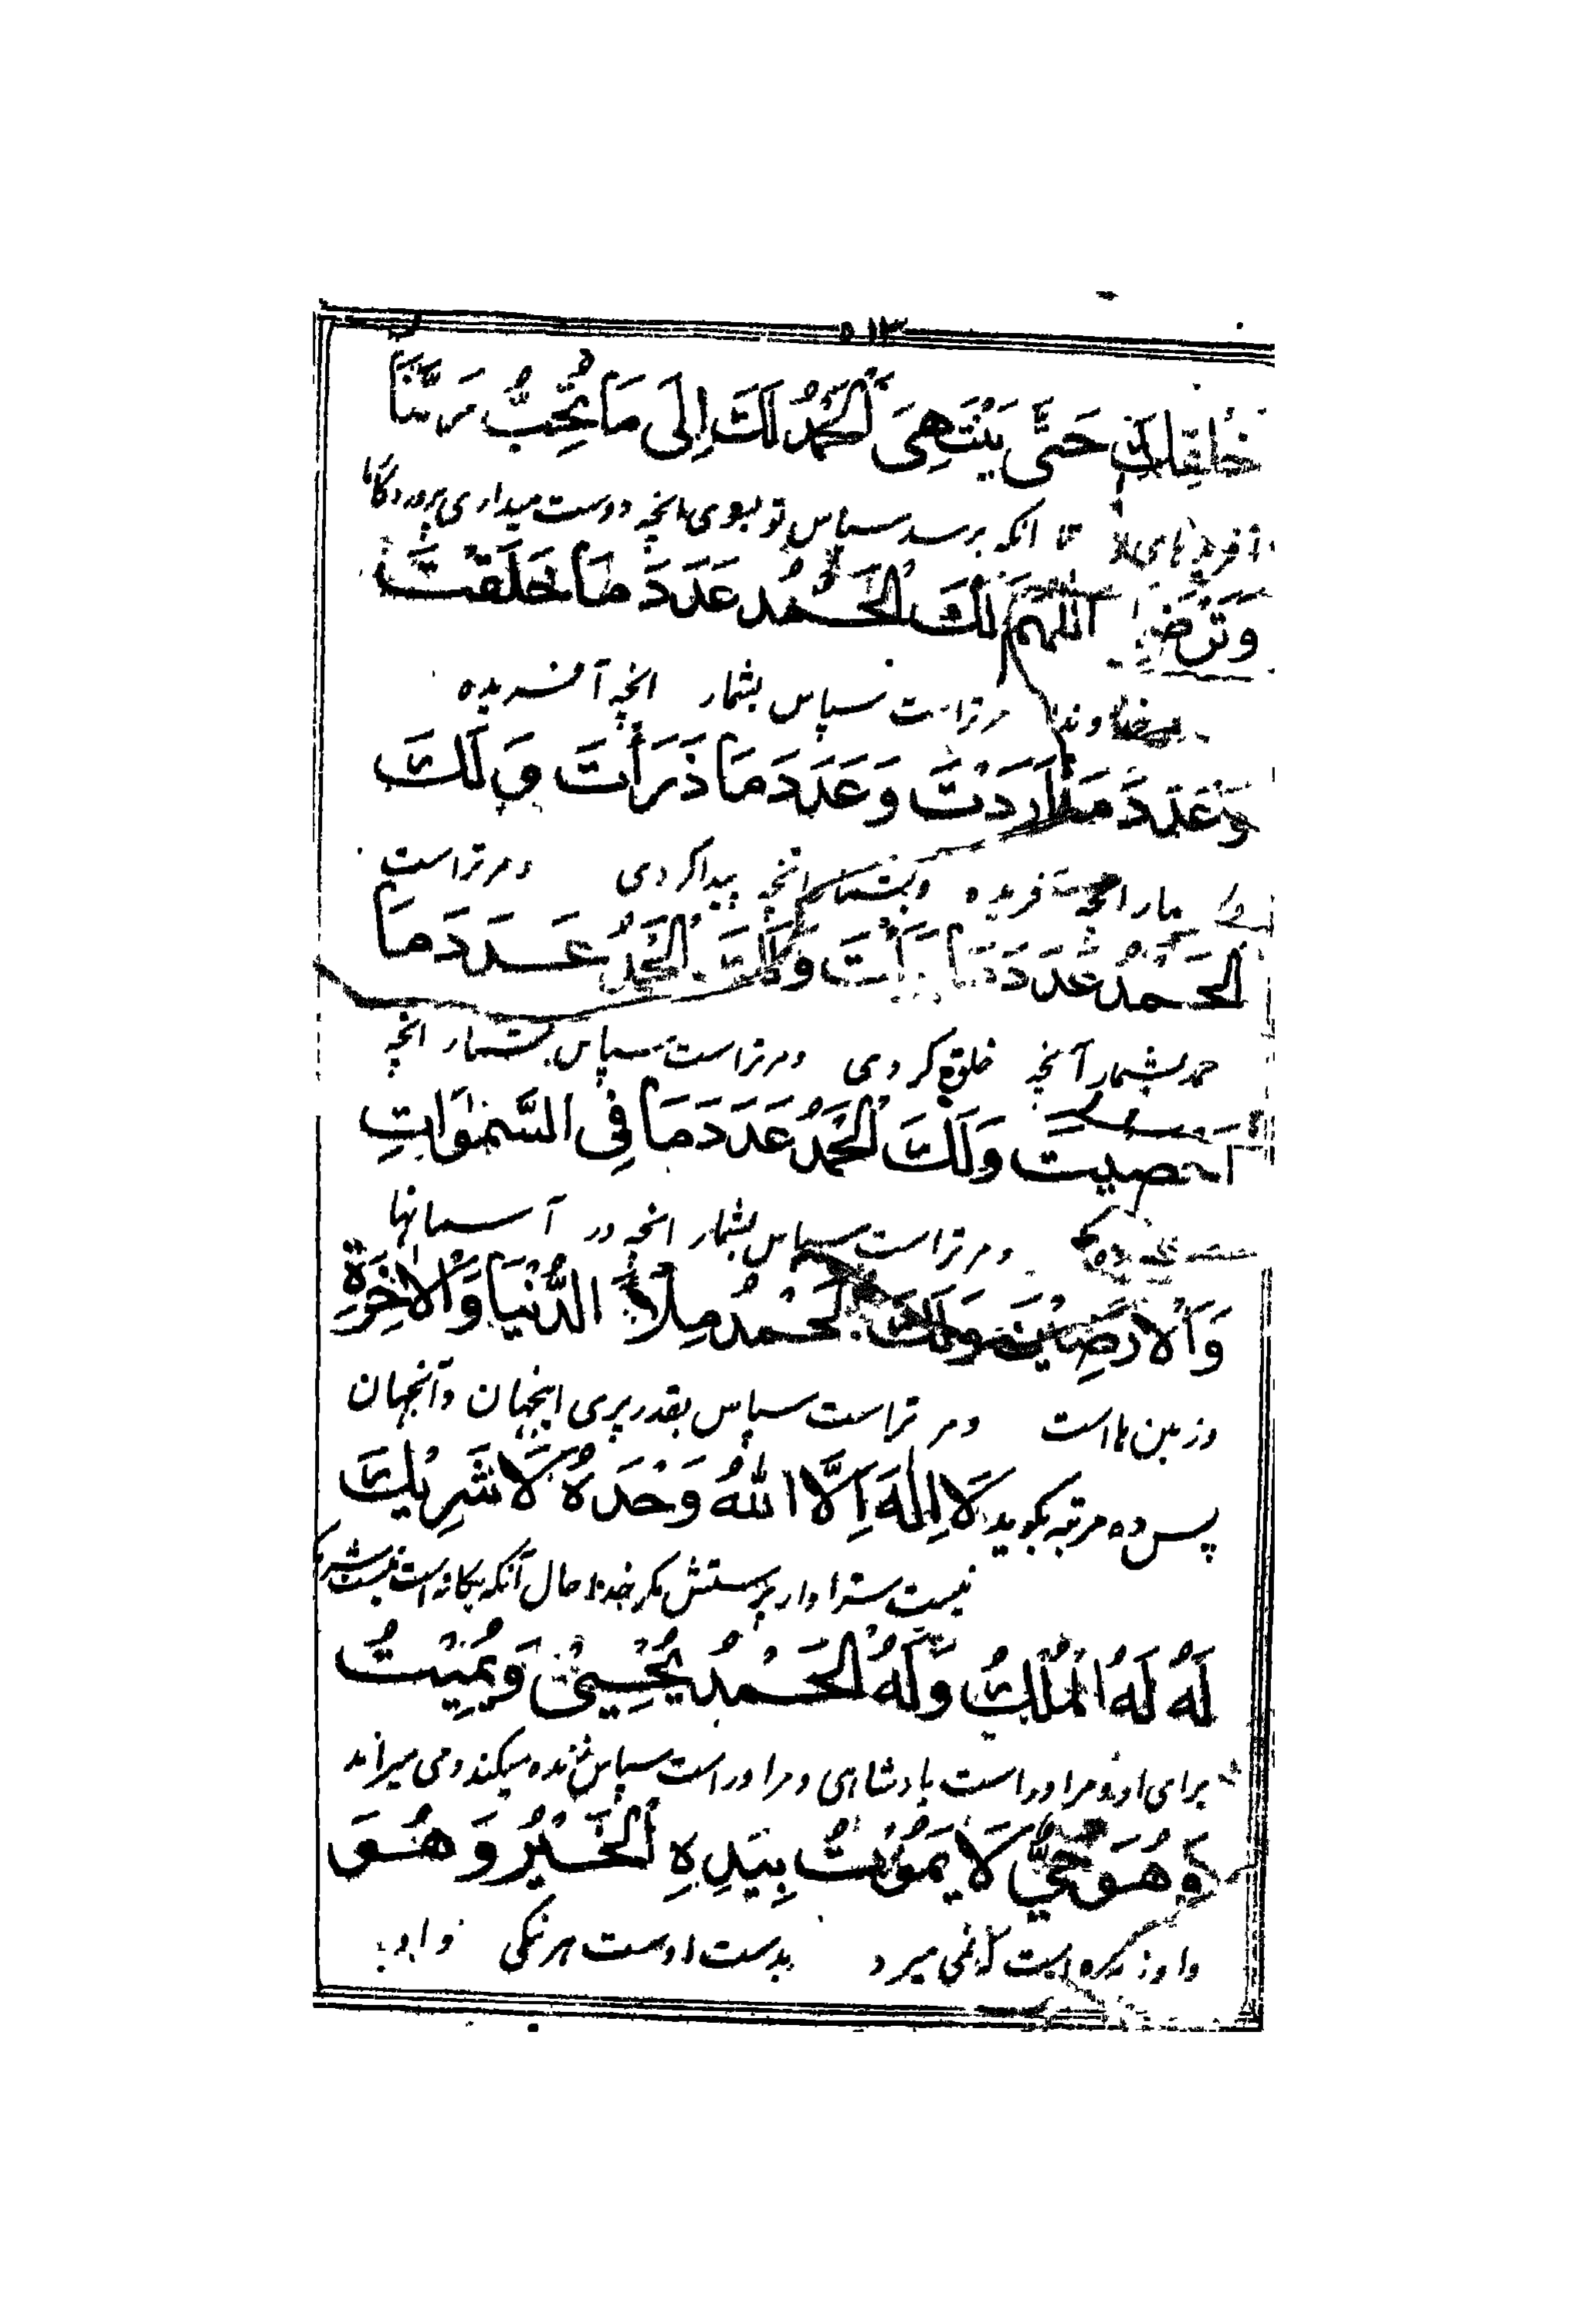 ۵۱۳
خَلْقِكَ حَتّٰى يَنْتَهِىَ الْحَمْدُ لَكَ اِلٰى مَا تُحِبُّ رَبَّنَا
تا انکه برسد سپاس تو بسوی انچه دوست میداری پروردگارا
وَتَرْضٰى اَللّٰهُمَّ لَكَ الْحَمْدُ عَدَدَ مَا خَلَقْتَ
خداوندا مر تراست سپاس بشمار انچه آفریده
وَعَدَدَ مَا ذَرَأْتَ وَلَكَ
وبشمار انچه پیدا کردی ومر تراست
الْحَمْدُ عَدَدَ مَا بَرَأْتَ وَلَكَ الْحَمْدُ عَدَدَ مَا
حمد بشمار آنچه خلق کردی ومر تراست سپاس بشمار انچه
اَحْصَيْتَ وَلَكَ الْحَمْدُ عَدَدَ مَا فِى السَّمٰوَاتِ
ومر تراست سپاس بشمار انچه در آسمانها
وَالْاَرَضِيْنَ وَلَكَ الْحَمْدُ مِلْأَ الدُّنْيَا وَالْاٰخِرَةِ
وزمین ها است ومر تراست سپاس بقدر پری اینجهان وآنجهان
پس ده مرتبه بگوید لَا اِلٰهَ اِلَّا اللهُ وَحْدَهُ لَا شَرِيْكَ
نیست سزاوار پرستش مگر خدا حال آنکه یگانه است نیست شریک
لَهُ لَهُ الْمُلْكُ وَلَهُ الْحَمْدُ يُحْيِىْ وَيُمِيْتُ
برای او ومر اوراست پادشاهی ومر اوراست سپاس زنده میکند و می میراند
وَهُوَ حَىٌّ لَا يَمُوْتُ بِيَدِهِ الْخَيْرُ وَهُوَ
واو زنده است که نمی میرد بدست اوست هر نیکی واو